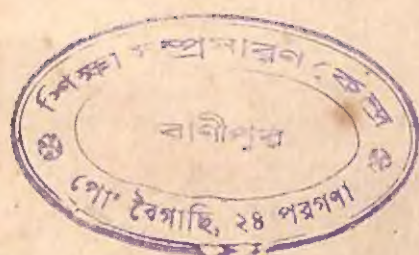 শিক্ষা সম্প্রসারণ কেন্দ্র
বাণীপুর
পোঃ বৈগাছি, ২৪ পরগণা